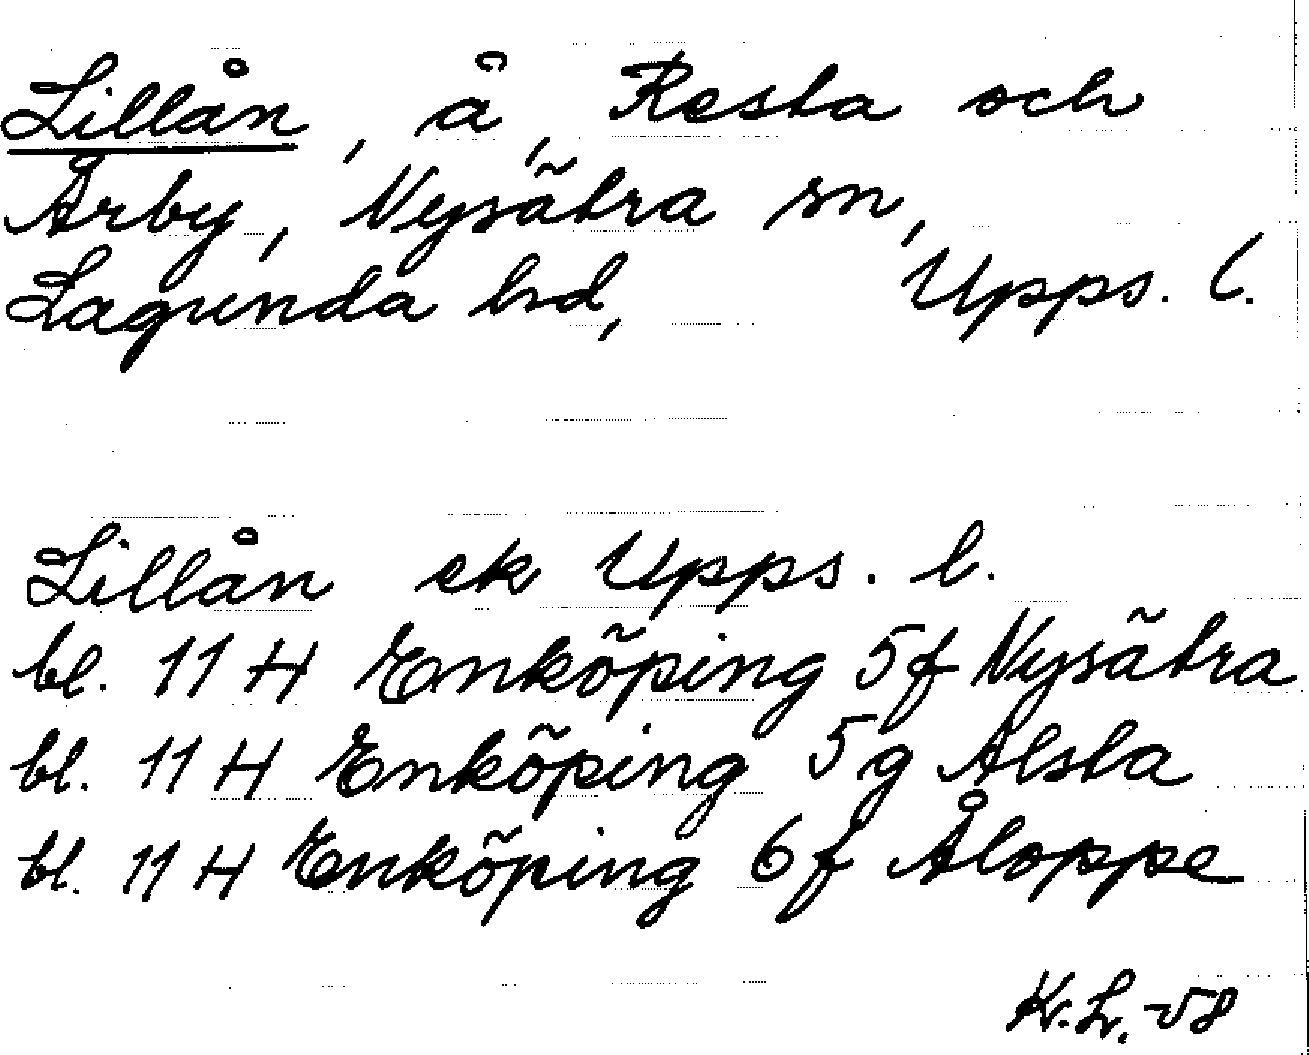 Lillån, å, Resta och
Årby, Nysätra sn,
Lagunda hd, Upps. l.
Lillån ek Upps. l.
bl. 11 H Enköping 5f Nysätra
bl. 11 H Enköping 5g Alsta
bl. 11 H Enköping 6f Åloppe
K.L. -58